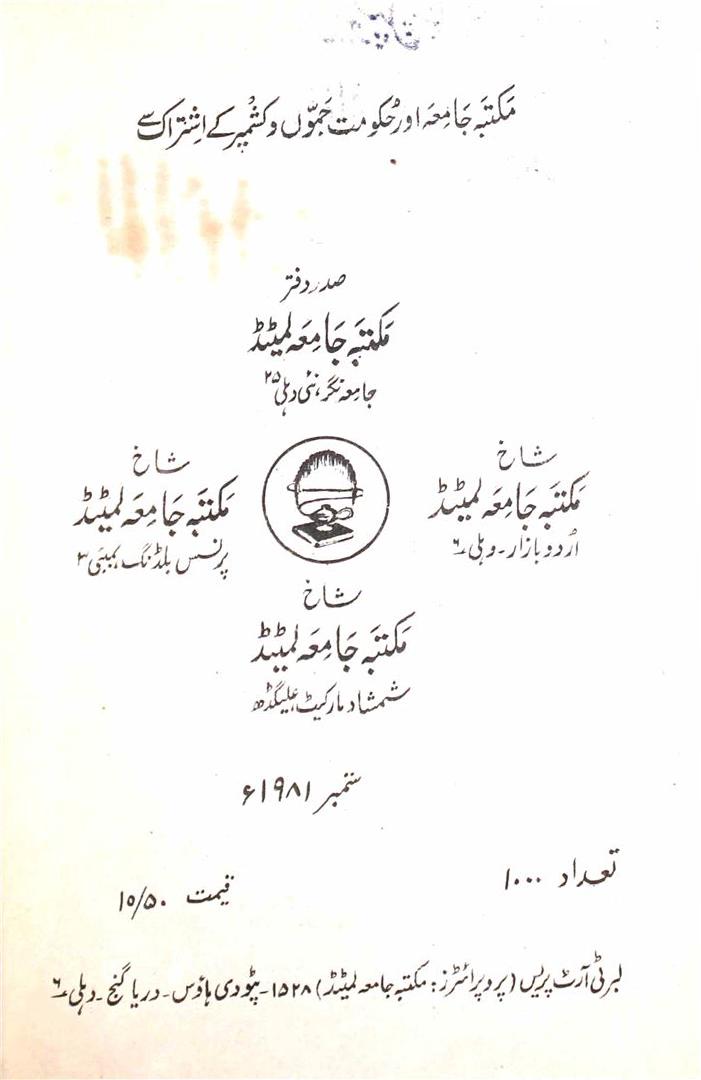 مکتبہ جامعہ اور حکومت جموّں و کشمیر کے اشتراک سے
صدر دفتر
مکتبہ جامعہ لمیٹڈ
جامعہ نگر، نئی دہلی ۲۵
شاخ
مکتبہ جامعہ لمیٹڈ
اُردو بازار۔ دہلی ۶
شاخ
مکتبہ جامعہ لمیٹڈ
پرنسس بلڈنگ، بمبئی ۳
شاخ
مکتبہ جامعہ لمیٹڈ
شمشاد مارکیٹ، علیگڑھ
ستمبر ۱۹۸۱ء
تعداد ۱۰۰۰
قیمت ۱۰/۵۰
لبرٹی آرٹ پریس (پروپرائٹرز: مکتبہ جامعہ لمیٹڈ) ۱۵۲۸۔ پٹودی ہاؤس۔ دریا گنج۔ دہلی ۶